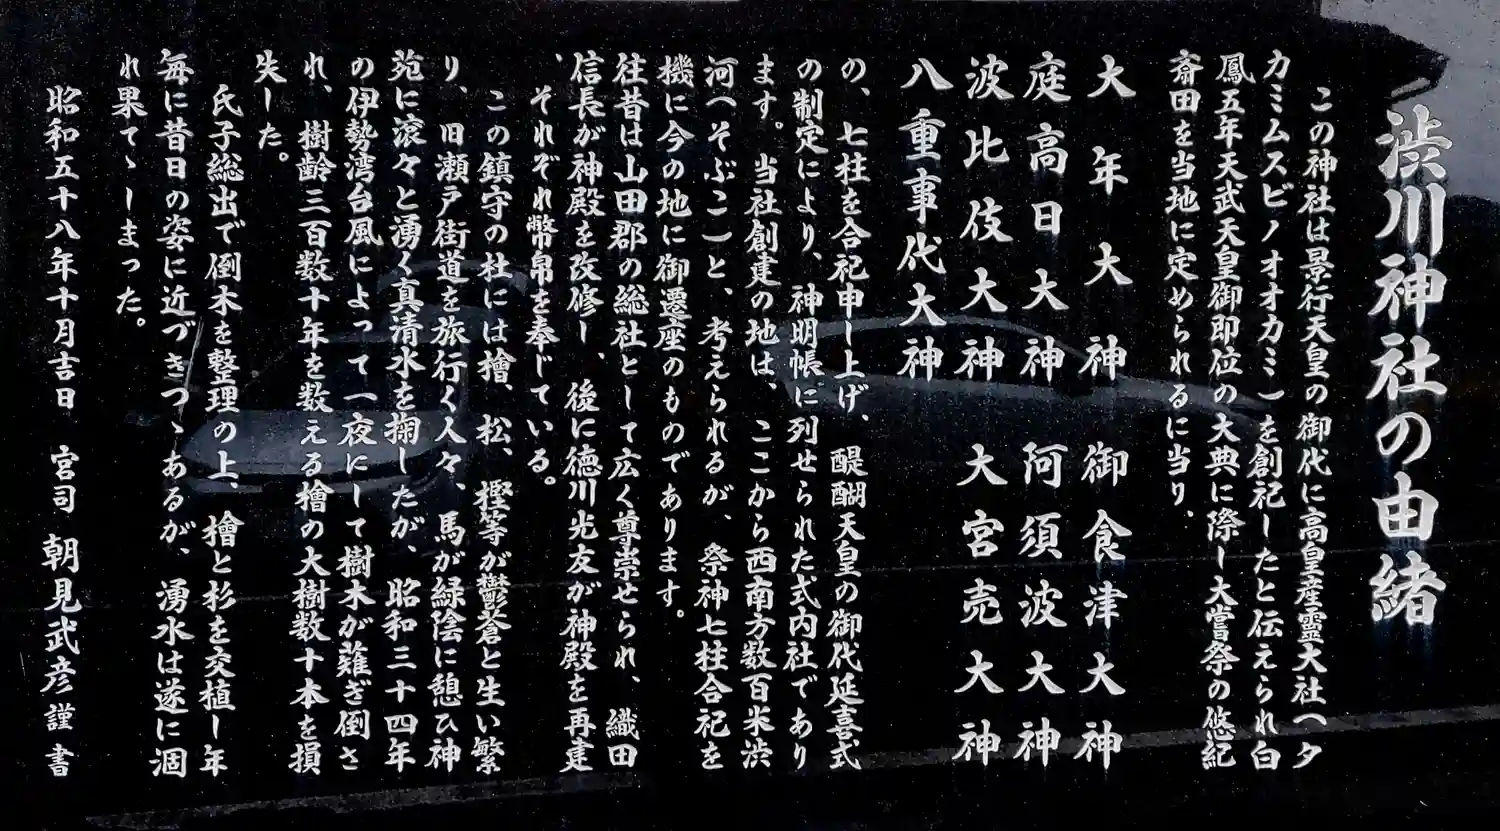 渋川神社の由緒
この神社は景行天皇の御代に高皇産霊大社(タ
カミムスビノオオカミ)を創祀したと伝えられ白
鳳五年天武天皇御即位の大典に際し大嘗祭の悠紀
斎田を当地に定められるに当り、
大年大神 御食津大神
庭高日大神 阿須波大神
波比伎大神 大宮売大神
八重事代大神
の、七柱を合祀申し上げ、醍醐天皇の御代延喜式
の制定により、神明帳に列せられた式内社であり
ます。当社創建の地は、ここから西南方数百米渋
河(そぶこ)と、考えられるが、祭神七柱合祀を
機に今の地に御遷座のものであります。
往昔は山田郡の総社として広く尊崇せられ、織田
信長が神殿を改修し、後に徳川光友が神殿を再建
、それぞれ幣帛を奉じている。
この鎮守の杜には檜、松、樫等が鬱蒼と生い繁
り、旧瀬戸街道を旅行く人々、馬が緑陰に憩ひ神
苑に滾々と湧く真清水を掬したが、昭和三十四年
の伊勢湾台風によって一夜にして樹木が薙ぎ倒さ
れ、樹齢三百数十年を数える檜の大樹数十本を損
失した。
氏子総出で倒木を整理の上、檜と杉を交植し年
毎に昔日の姿に近づきつゝあるが、湧水は遂に涸
れ果てゝしまった。
昭和五十八年十月吉日 宮司 朝見武彦 謹書